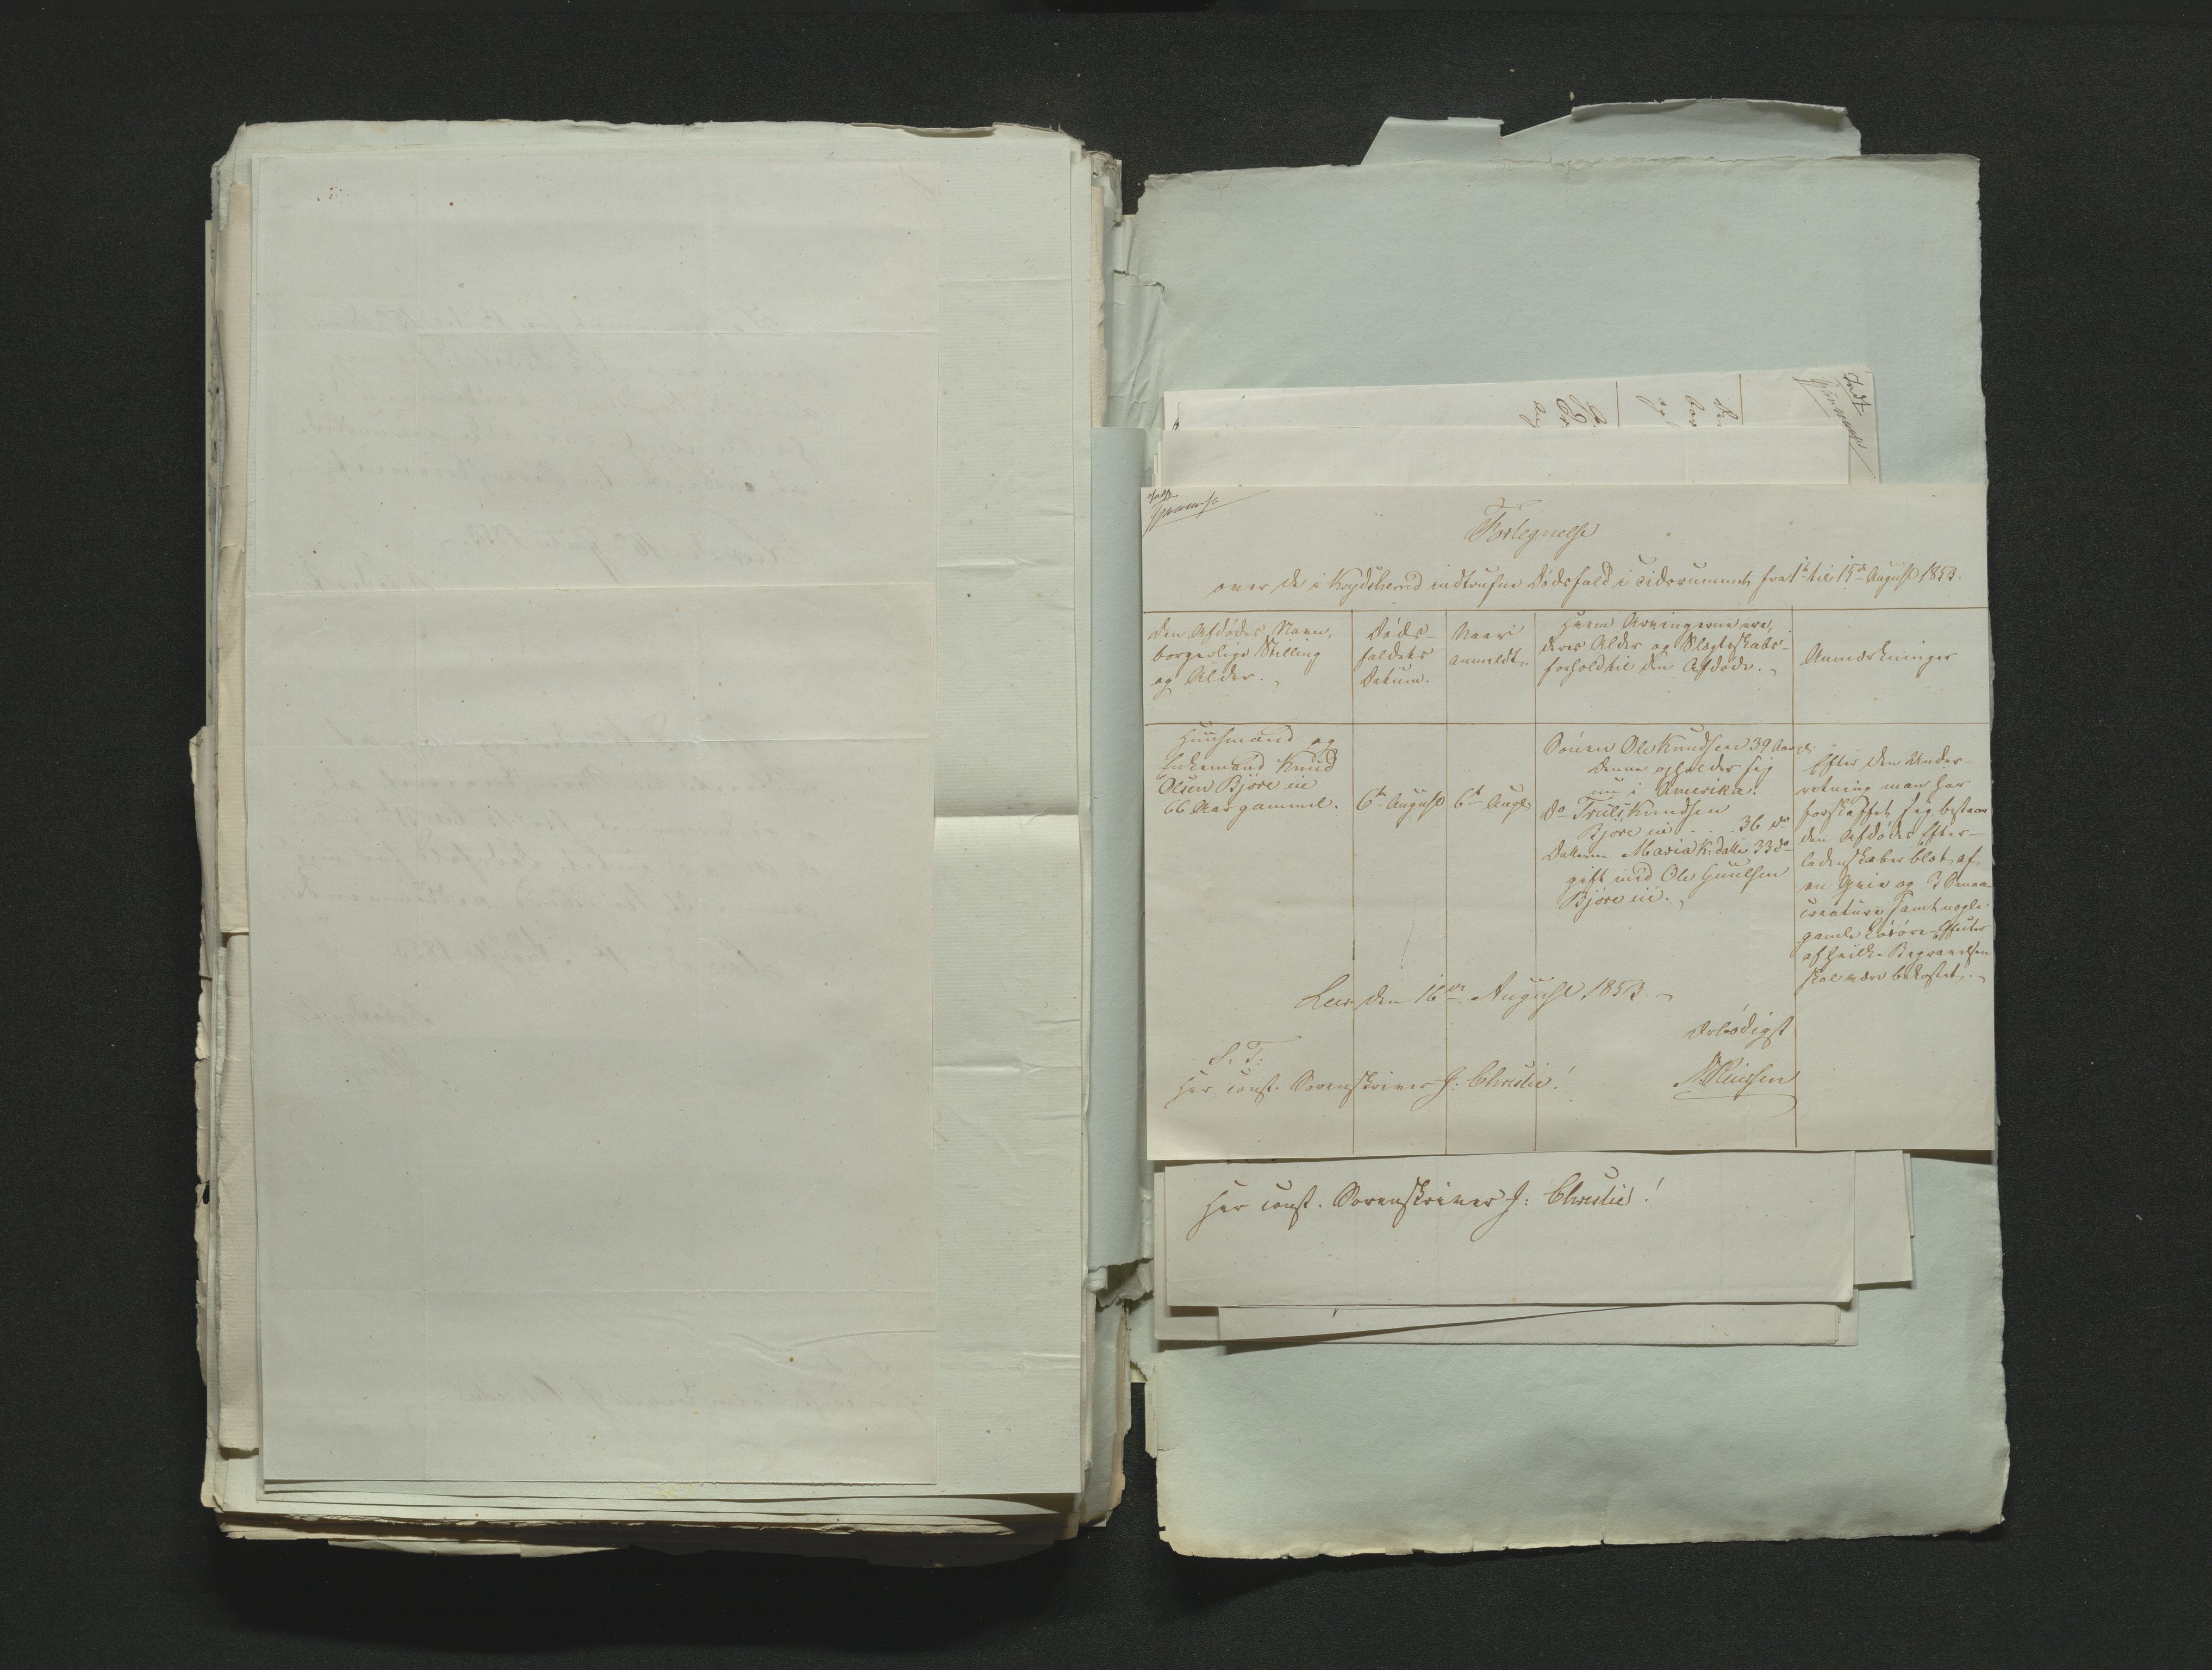 Fortegnelse
over de i Krydsherred indtrufne Dødsfald i Tidsrummet fra 1ste til 15de August 1853.
Den Afdødes Navn,
borgerlige Stilling
og Alder.
Døds-
faldets
Datum.
Naar
anmeldt.
Hvem Arvingerne ere,
deres Alder og Slægtskabs-
forhold til den Afdøde.
Anmærkninger
Huusmand og
Enkemand Knud
Olsen Bjøre
66 Aar gammel.
6te August
6te Augt.
Sønnen Ole Knudsen 39 Aar gl.
Denne opholder sig
nu i Amerika.
Do Truls Knudsen
Bjøre 36 do
Datteren Maria K: datter 33 do
gift med Ole Huulsen
Bjøre
Efter den Under-
retning man har
forskaffet sig bestaar
den Afdødes Efter-
ladenskaber blot af
en Qvie og 3 Smaa-
creature samt nogle
gamle Løsøre Effecter
af hvilke Begravelsen
skal være bekostet.
den 16de August 1853.
Ærbødigst
S. T.
Her const. Sorenskriver J. Christie!
Her const. Sorenskriver J: Christie!